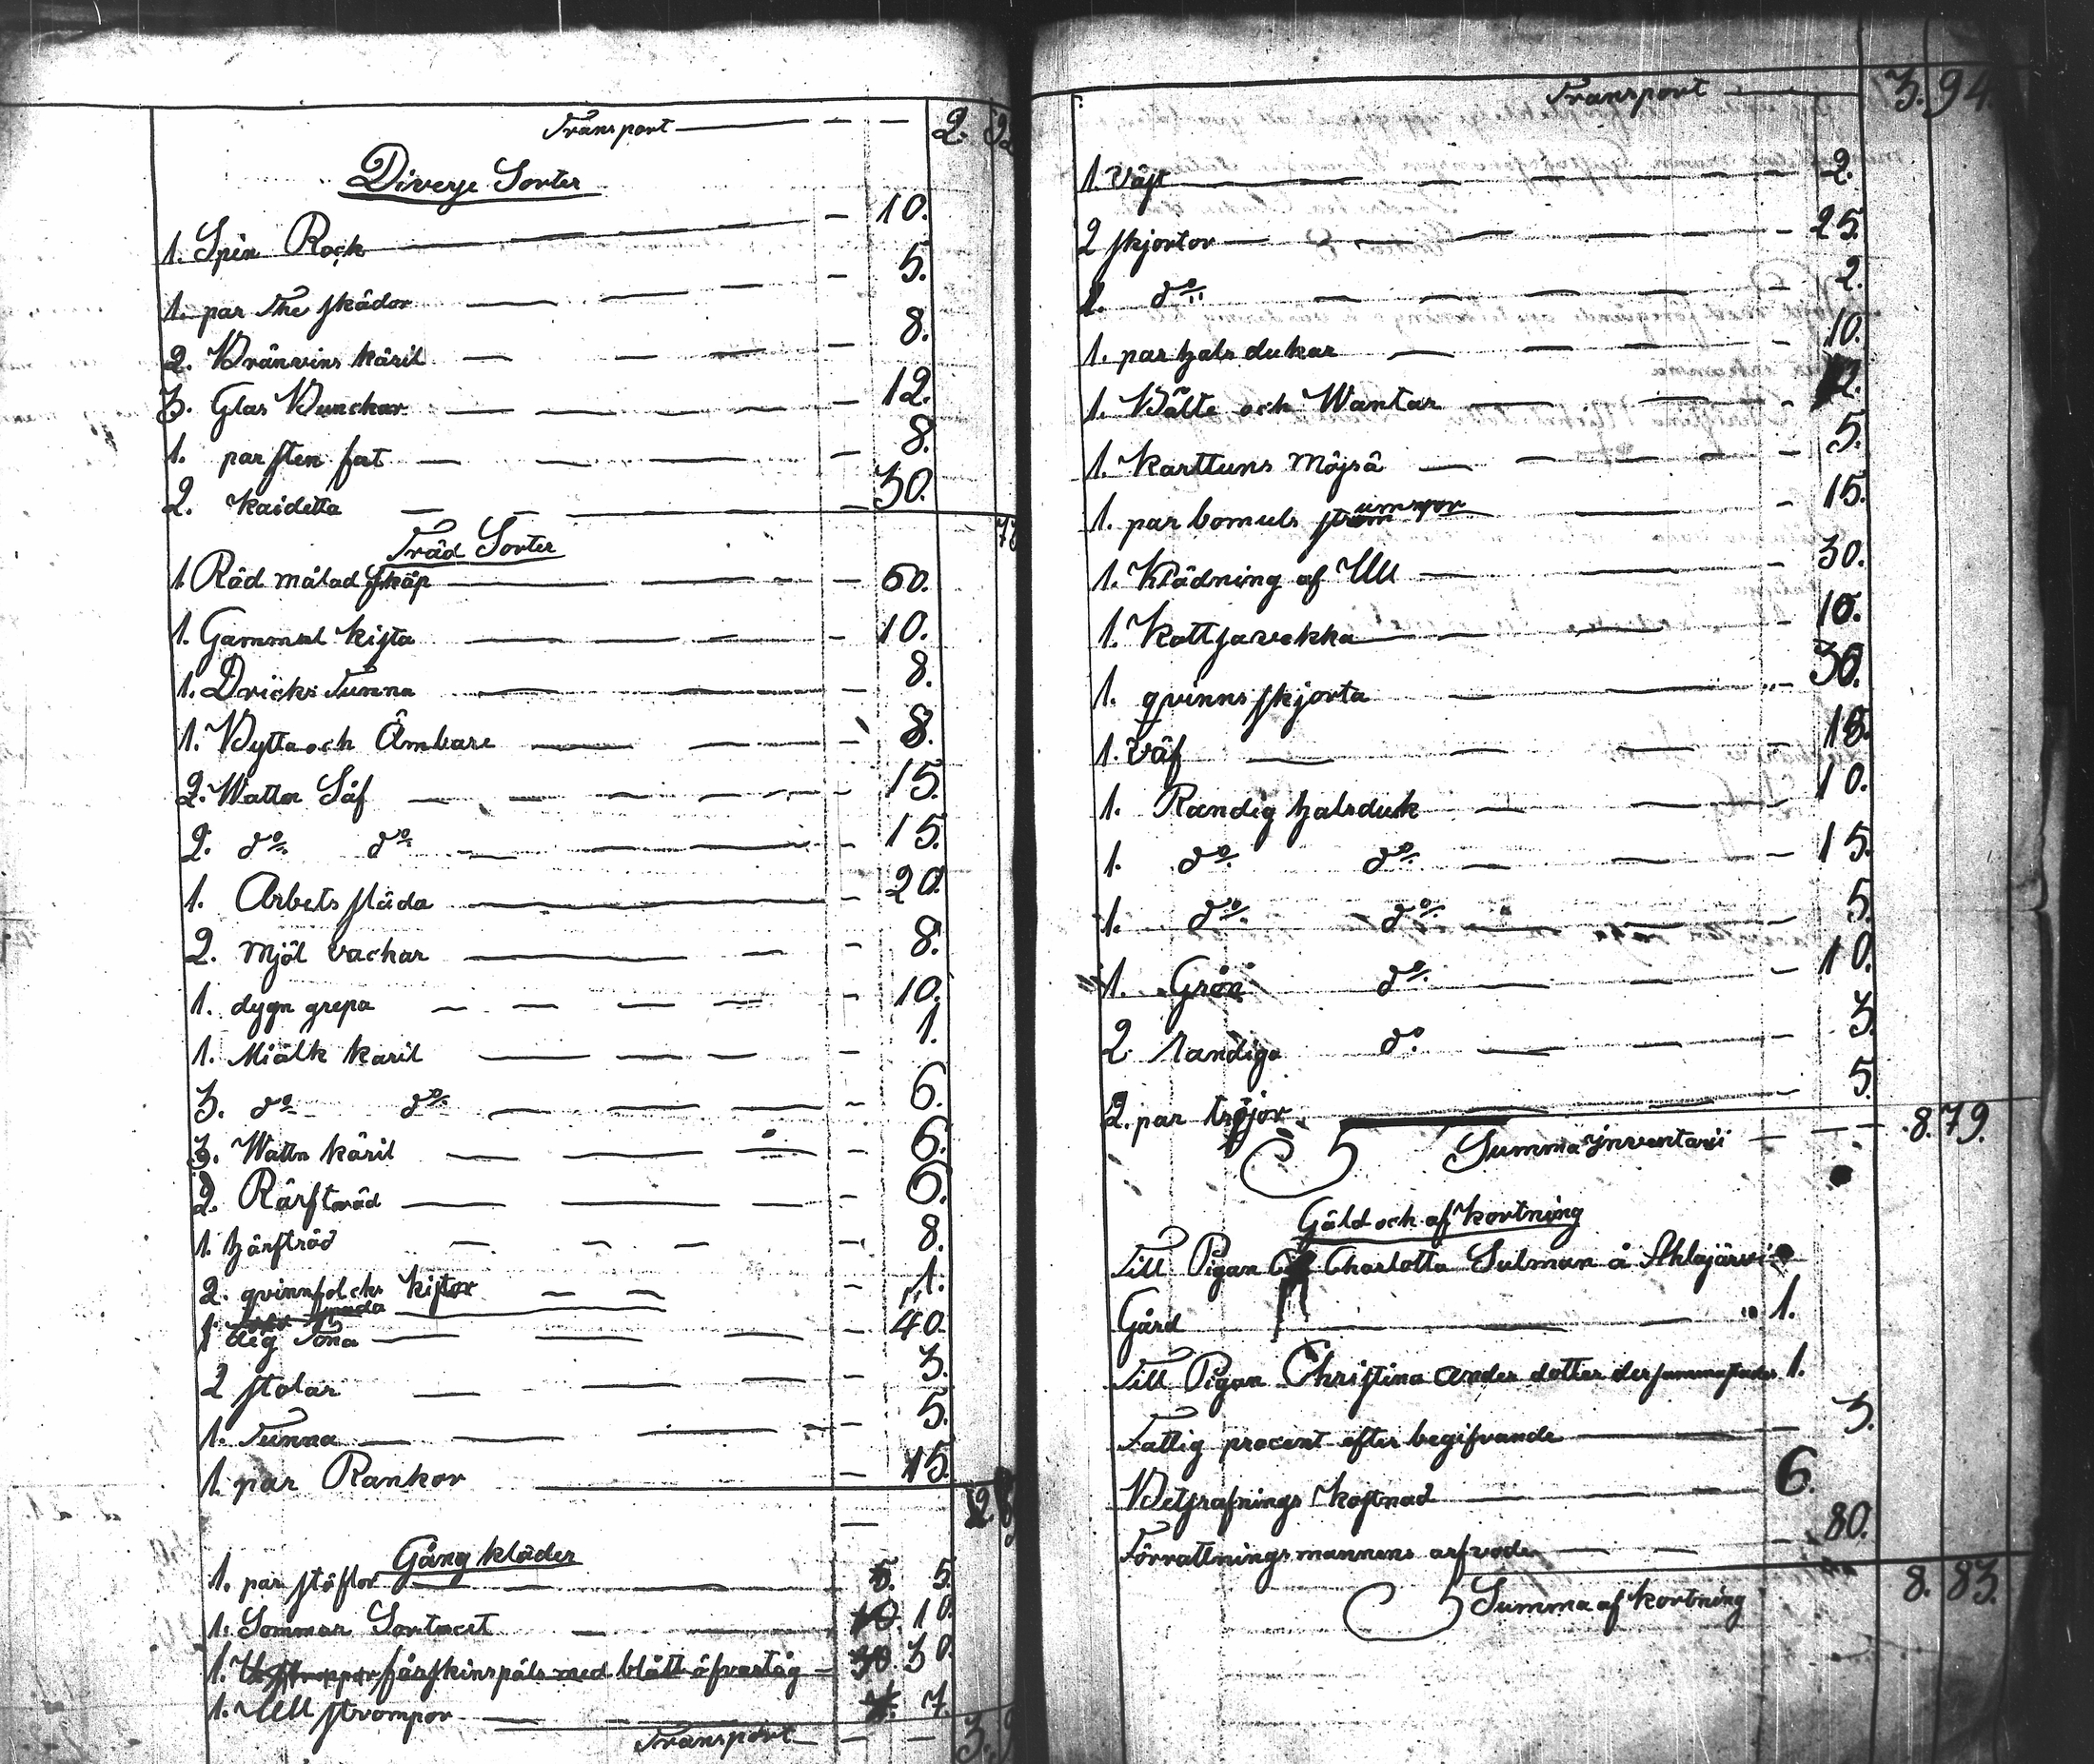 Transport — — — 2. 52
Diverse Sorter
1. Spin Rock — 10.
1. par The skådor — 5.
2. Bränvins käril — 8.
3. Glas Bunckar — 12.
1. par sten fat — 8.
2. Kaidetta — 30.
73
Träd Sorter
1 Råd målad skåp — 60.
1. Gammal Kista — 10.
1. Dricks Tunna — 8.
1. Bytta och Ämbare — 8.
2. Watten Såf — 15.
2. do. do. — 15.
1. Arbets släda — 20.
2. Mjöl vackar — 8.
1. dygn grepa — 10.
1. Miölk Karil — 1.
3. do do. — 6.
3. Wattn käril — 6.
2. Rärftträd — 6.
1. härftråd — 8.
2. qvinnfolcks kistor — 1.
1 deg Tona — 40.
2 stolar — 3.
1. Tunna — 5.
1. par Rankor — 15.
2.
Gång kläder
1. par stöflor — 5. 5.
1. Sommar Sortucet — 10. 10.
1. fårskinspäls med blått öfvertåg — 30. 30.
1. Ull strompor — 7.
Transport — — 3. 9
Transport — 3. 94.
1. Väst — 2.
2 skjortor — 25.
2. do. — 2.
1. par hals dukar — 10.
1. Bälte och Wantar — 12.
1. Karttuns Möjsä — 5.
1. par bomuls strumpor — 15.
1. Klädning af Ull — 30.
1. Kattjavekka — 10.
1. qvinns skjorta — 30.
1. Väf — 18.
1. Randig halsduk — 10.
1. do. do. — 15.
1. do. do. — 5.
1. Grön do. — 10.
2 randiga do. — 3.
2. par tröjor — 5.
Summa ynventarii — — 8. 79.
Gäld och af kortning
Till Pigan Charlotta Sulman å Ahlajärvi
Gård — 1.
Till Pigan Christina Anders dotter dersammastädes 1.
Fattig procent efter begifvande — 3.
Begrafnings Kostnad — 6.
Förrattningsmannens arfvode — 80.
Summa af kortning 8. 83.